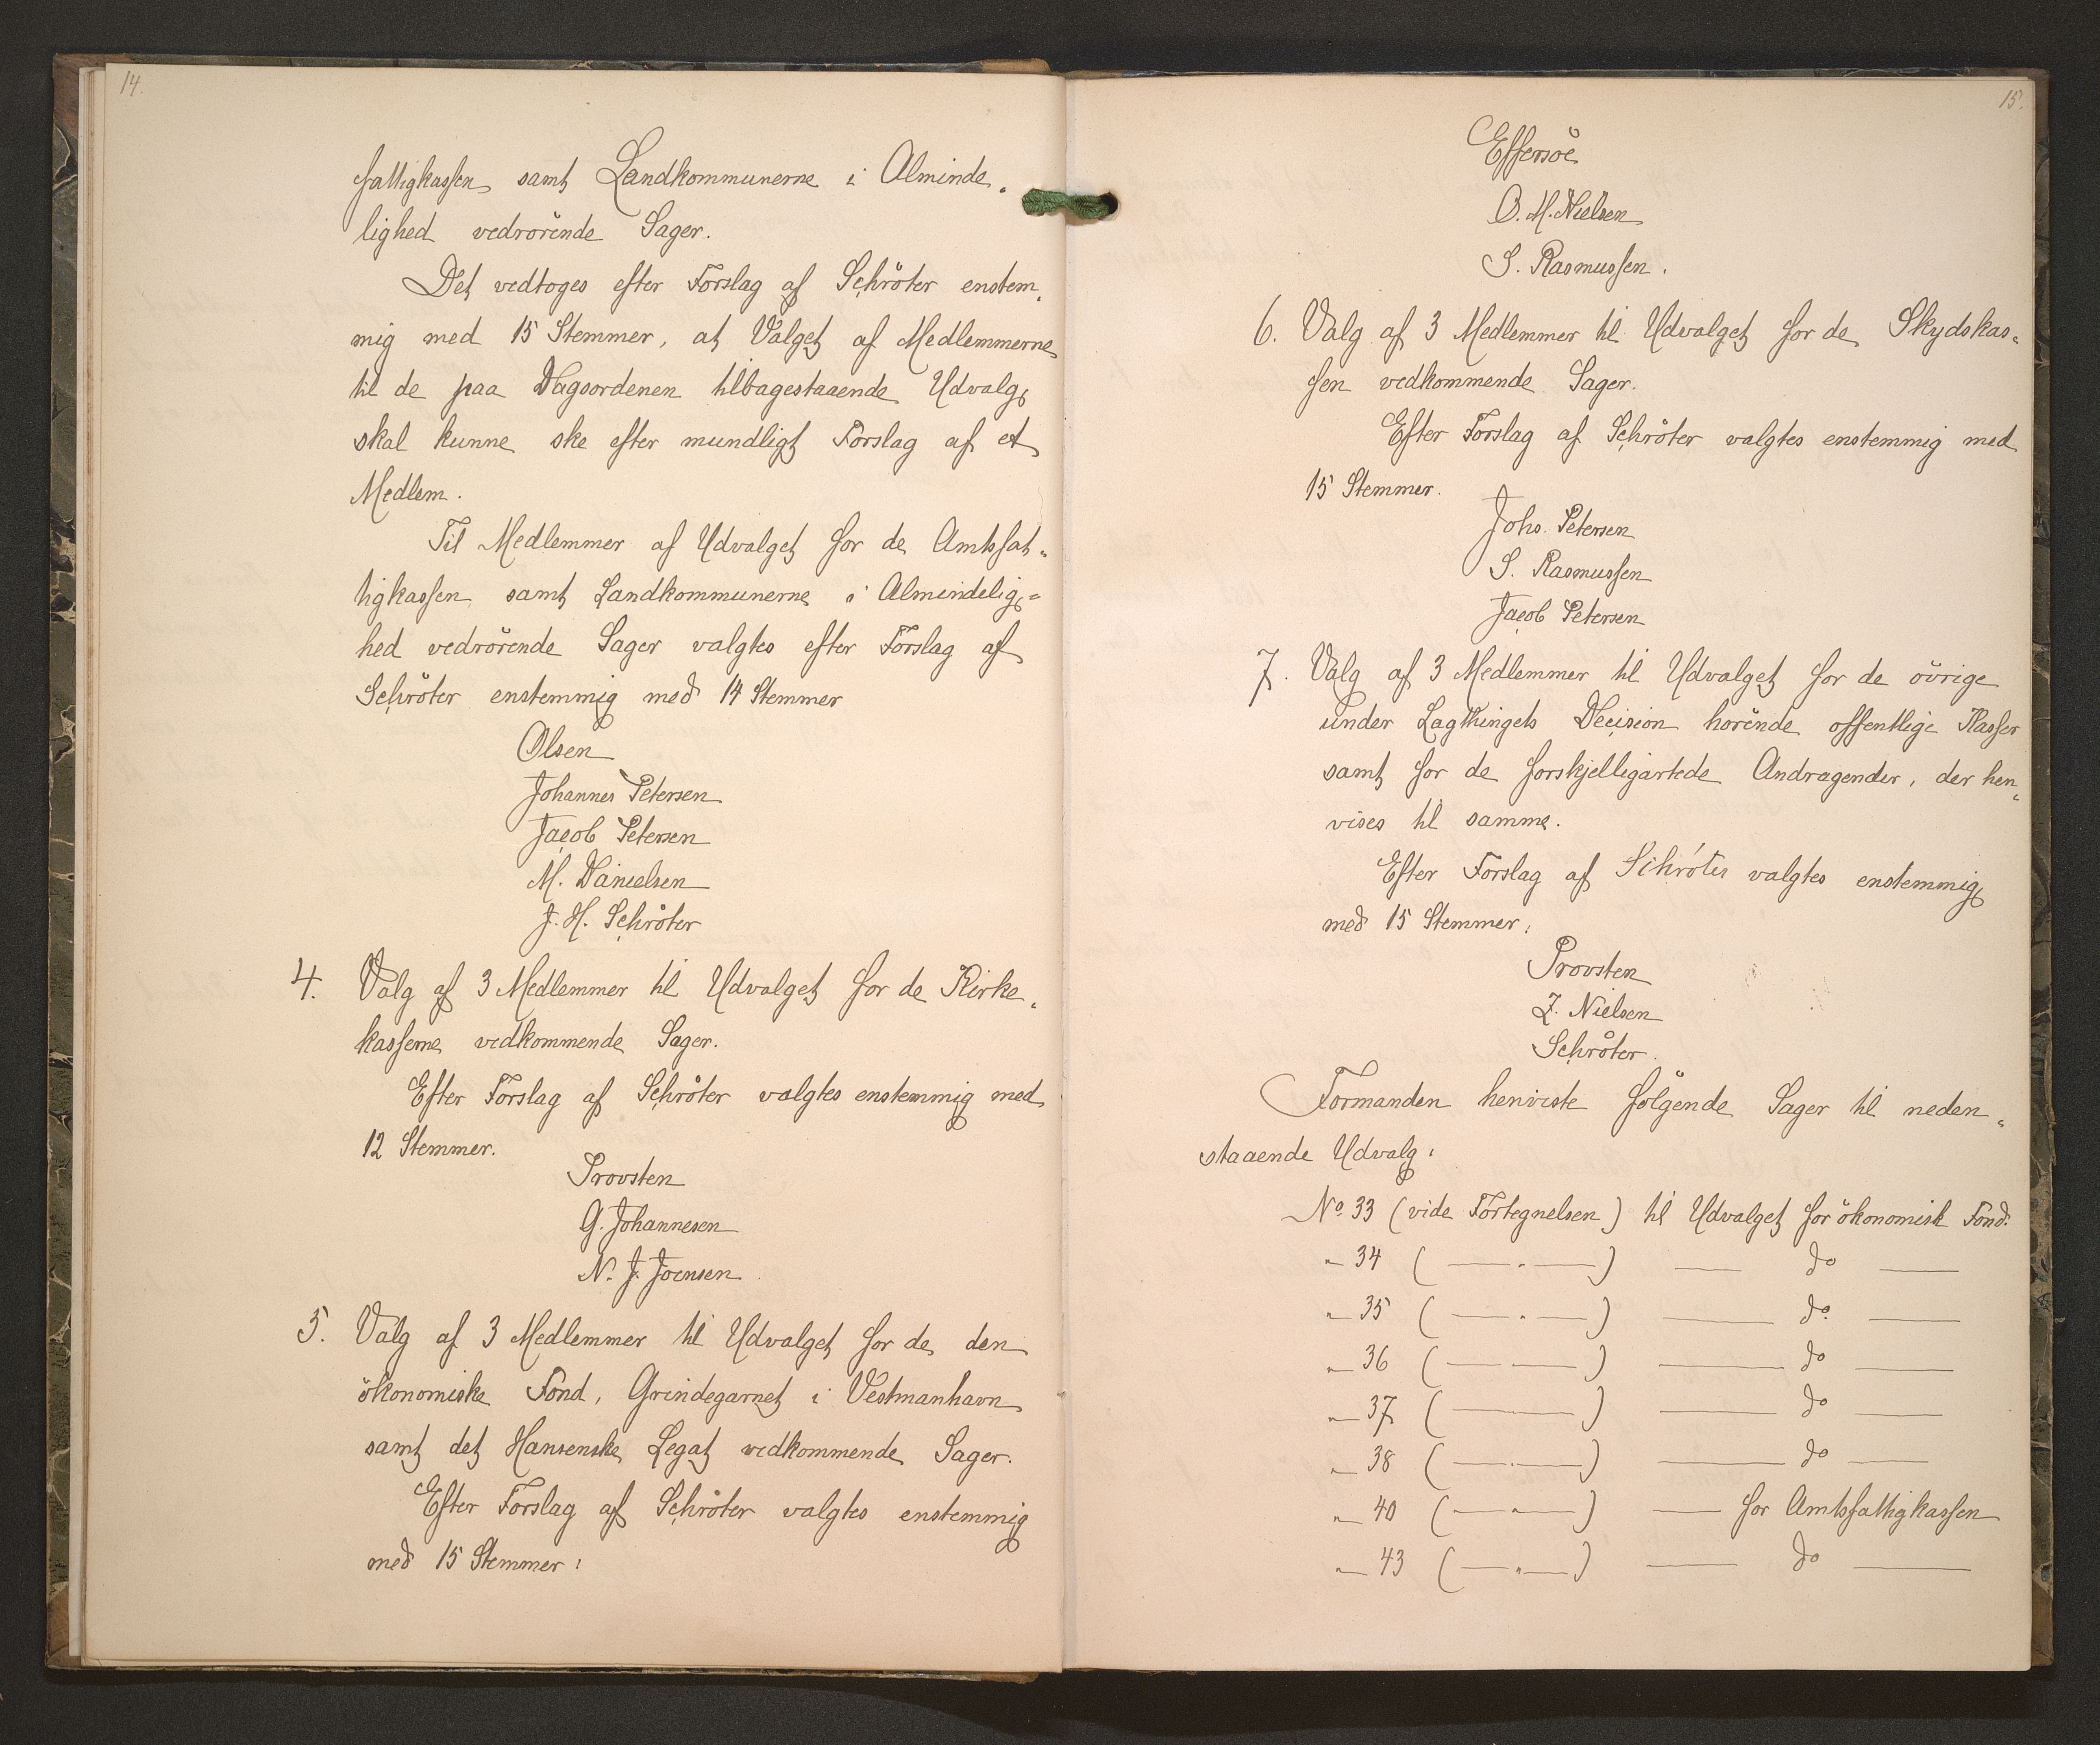 14.
fattigkassen samt Landkommunerne i Alminde„
lighed vedrörende Sager.
Det vedtoges efter Forslag af Schröter enstem„
mig med 15 Stemmer, at Valget af Medlemmerne
til de paa Dagsordenen tilbagestaaende Udvalg
skal kunne ske efter mundligt Forslag af et
Medlem.
Til Medlemmer af Udvalget for de Amtsfat„
tigkassen samt Landkommunerne i Almindelig=
hed vedrörende Sager valgtes efter Forslag af
Schröter enstemmig med 14 Stemmer
Olsen
Johannes Petersen
Jacob Petersen
M. Danielsen
J. H. Schröter
4. Valg af 3 Medlemmer til Udvalget for de Kirke„
kasserne vedkommende Sager.
Efter Forslag af Schröter valgtes enstemmig med
12 Stemmer.
Provsten
G. Johannesen
N. J. Joensen
5. Valg af 3 Medlemmer til Udvalget for de den
ökonomiske Fond, Grindegarnet i Vestmanhavn
samt det Hansenske Legat vedkommende Sager.
Efter Forslag af Schröter valgtes enstemmig
med 15 Stemmer:
15.
Effersöe
O. M. Nielsen
S. Rasmussen.
6. Valg af 3 Medlemmer til Udvalget for de Skydskas„
sen vedkommende Sager.
Efter Forslag af Schröter valgtes enstemmig med
15 Stemmer.
Johs. Petersen
S. Rasmussen
Jacob Petersen
7. Valg af 3 Medlemmer til Udvalget for de övrige
under Lagthingets Decision hörende offentlige Kasser
samt for de forskjelligartede Andragender, der hen„
vises til samme.
Efter Forslag af Schröter valgtes enstemmig
med 15 Stemmer:
Provsten
Z. Nielsen
Schröter.
Formanden henviste fölgende Sager til neden„
staaende Udvalg:
No. 33 (vide Fortegnelsen) til Udvalget for ökonomisk Fond.
„— 34 (— „ —) — do —
„— 35 (— „ —) — do. —
„— 36 (— „ —) — do —
„— 37 (———) — do —
„— 38 (— „ —) — do —
„— 40 (— „ —) — for Amtsfattigkassen
„— 43 (— „ —) — do —